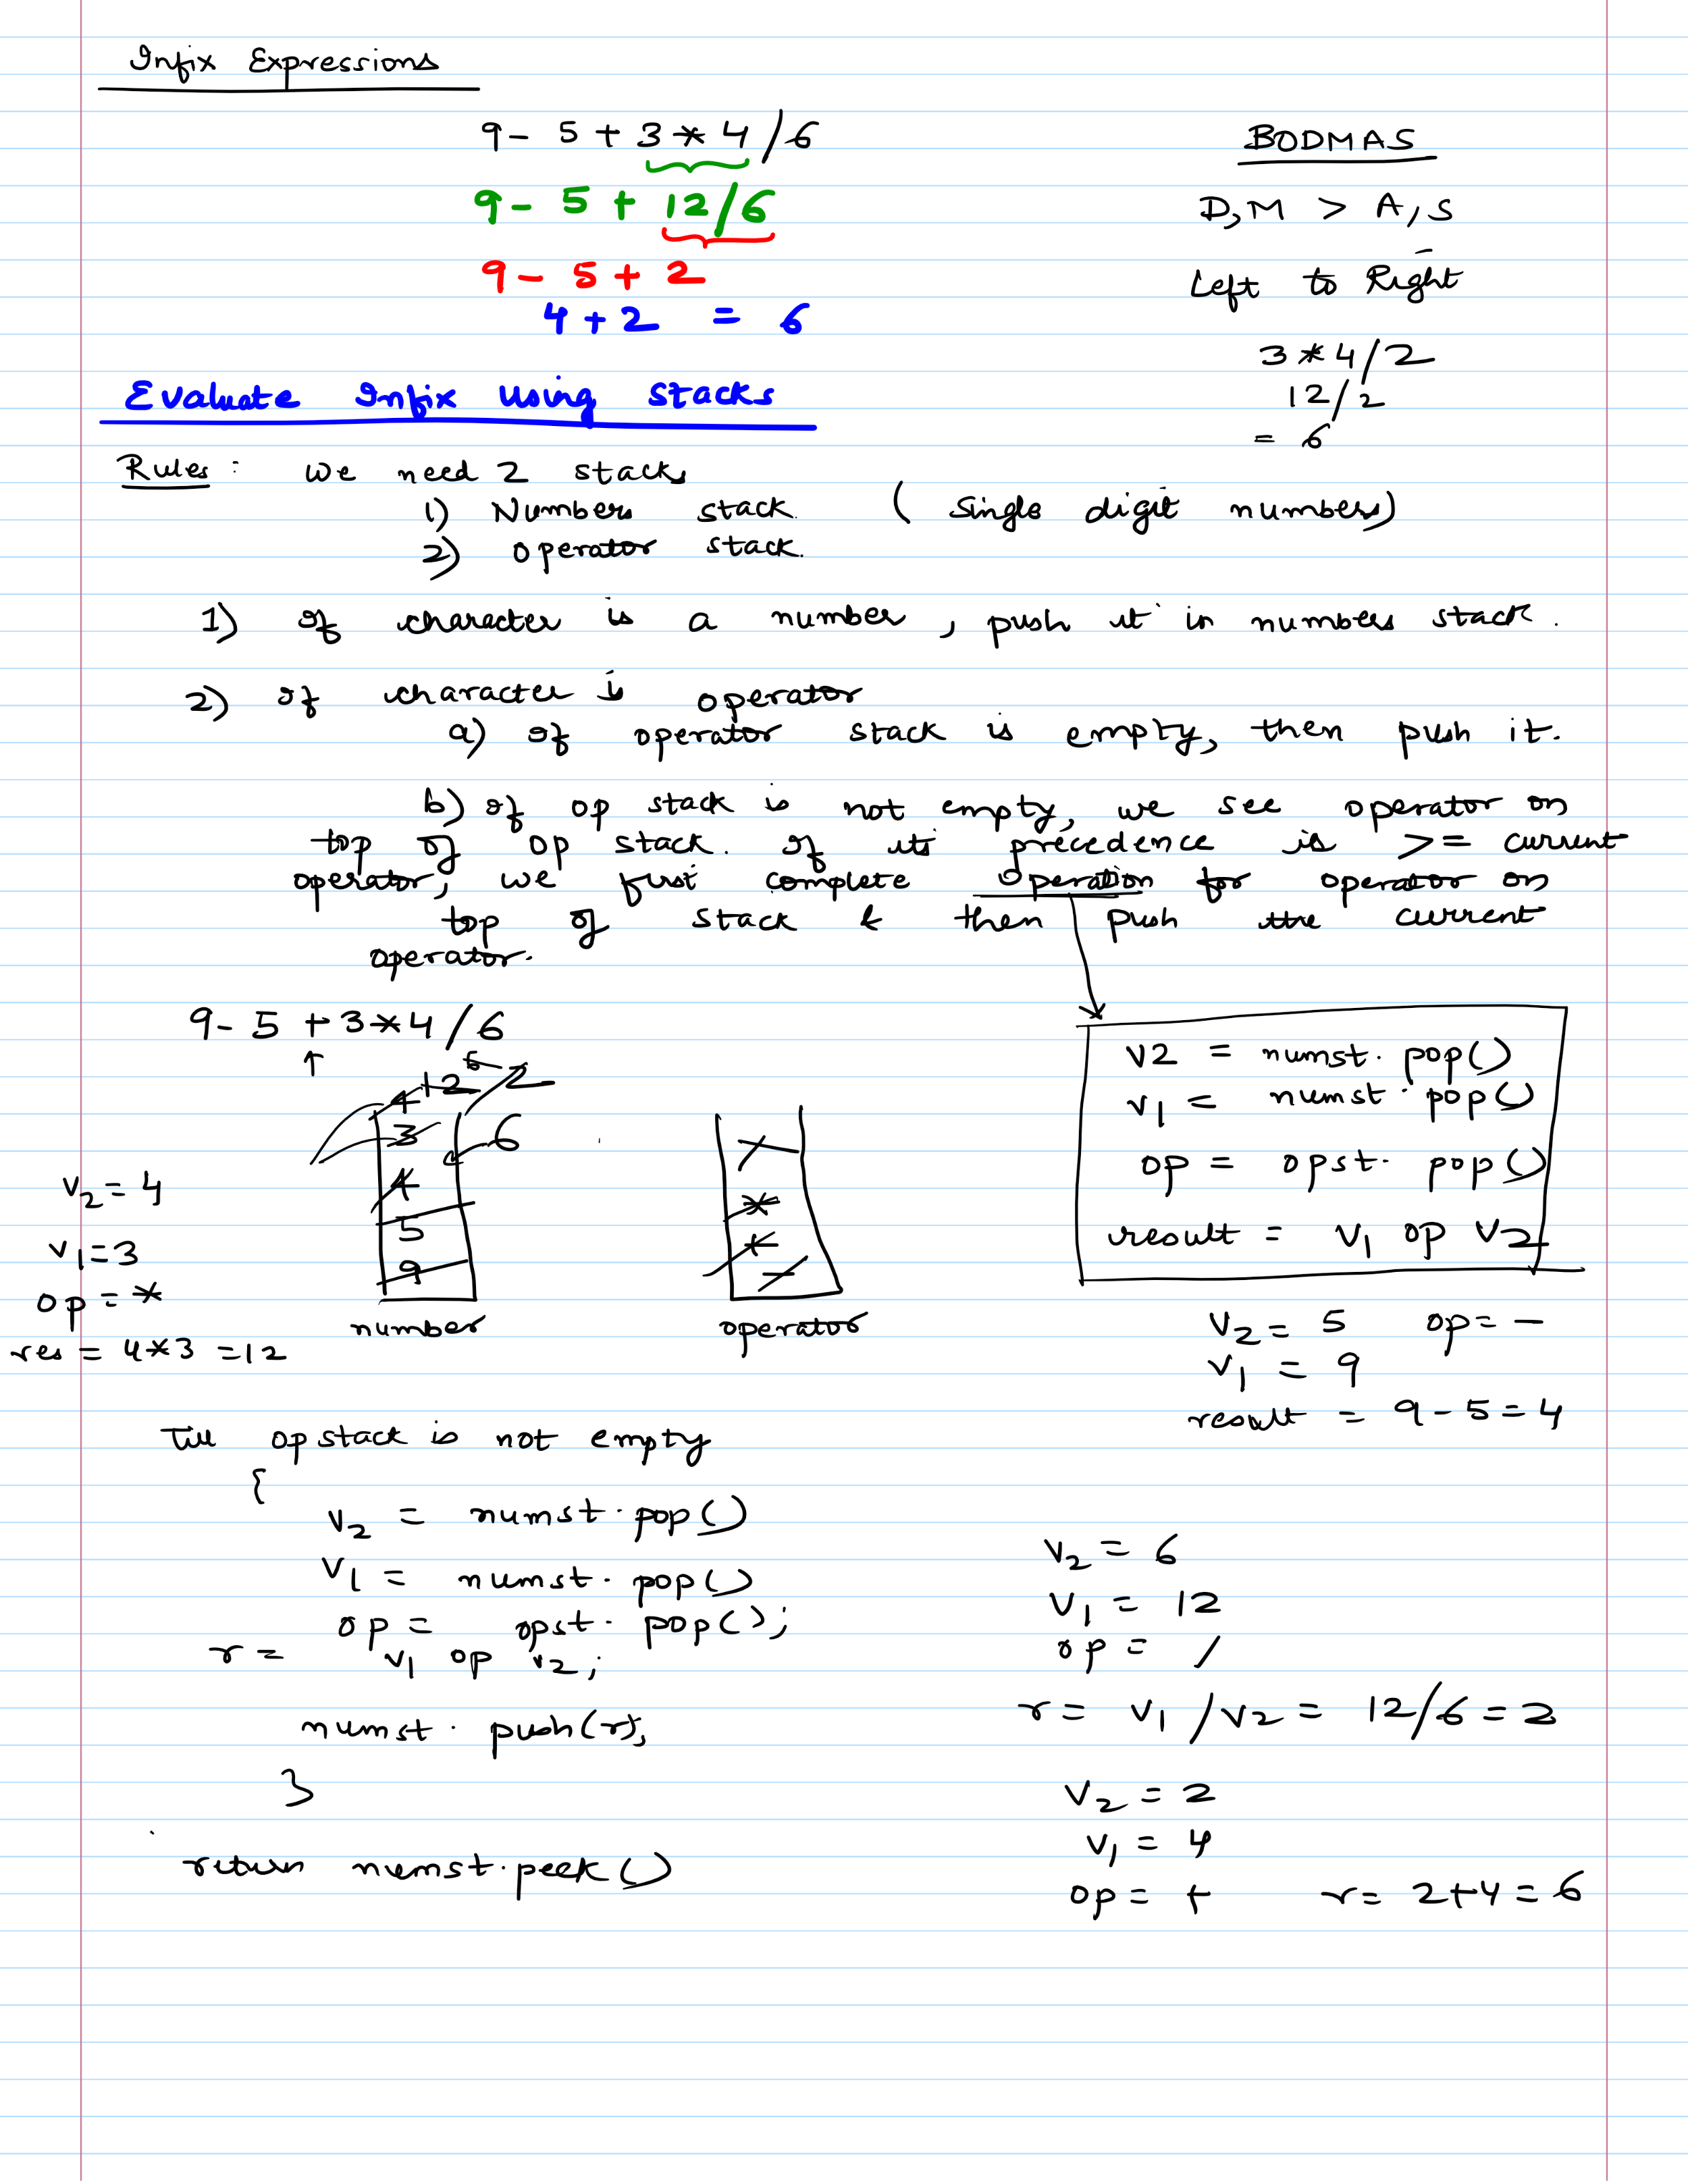 Infix Expressions
9 - 5 + 3 * 4 / 6
9 - 5 + 12/6
9 - 5 + 2
4 + 2 = 6
BODMAS
D,M > A,S
Left to Right
3 * 4/2
12/2
= 6
Evaluate Infix Using Stacks
Rules : we need 2 stacks
1) Numbers stack. (single digit numbers)
2) operator stack.
1) If character is a number, push it in numbers stack.
2) If character is operator
a) If operator stack is empty, then push it.
b) If op stack is not empty, we see operator on
top of op stack. If its precedence is >= current
operator, we first complete operation for operator on
top of stack & then push the current
operator.
9 - 5 + 3 * 4 / 6
↑
6
4 12 2
3 6
4
5
9
number
/
*
+
-
operator
v2 = 4
v1 = 3
op = *
res = 4*3 = 12
v2 = numst.pop()
v1 = numst.pop()
op = opst.pop()
result = v1 op v2
v2 = 5 op = -
v1 = 9
result = 9 - 5 = 4
Till opstack is not empty
{
v2 = numst.pop()
v1 = numst.pop()
op = opst.pop();
r = v1 op v2;
numst.push(r);
}
return numst.peek()
v2 = 6
v1 = 12
op = /
r = v1 / v2 = 12/6 = 2
v2 = 2
v1 = 4
op = + r = 2+4 = 6